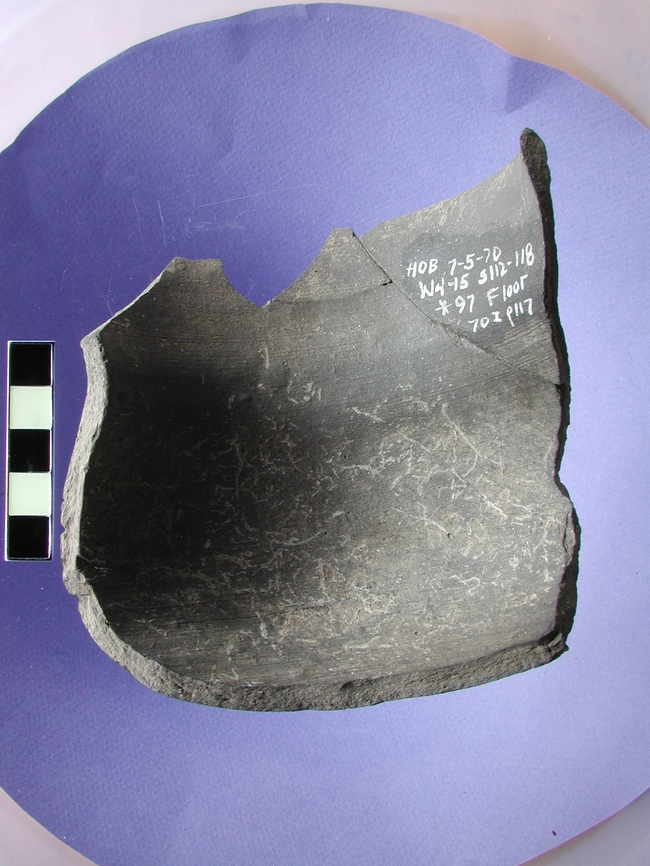 HOB 7-5-70
W4-15 S112-118
*97 Floor
70 I P117